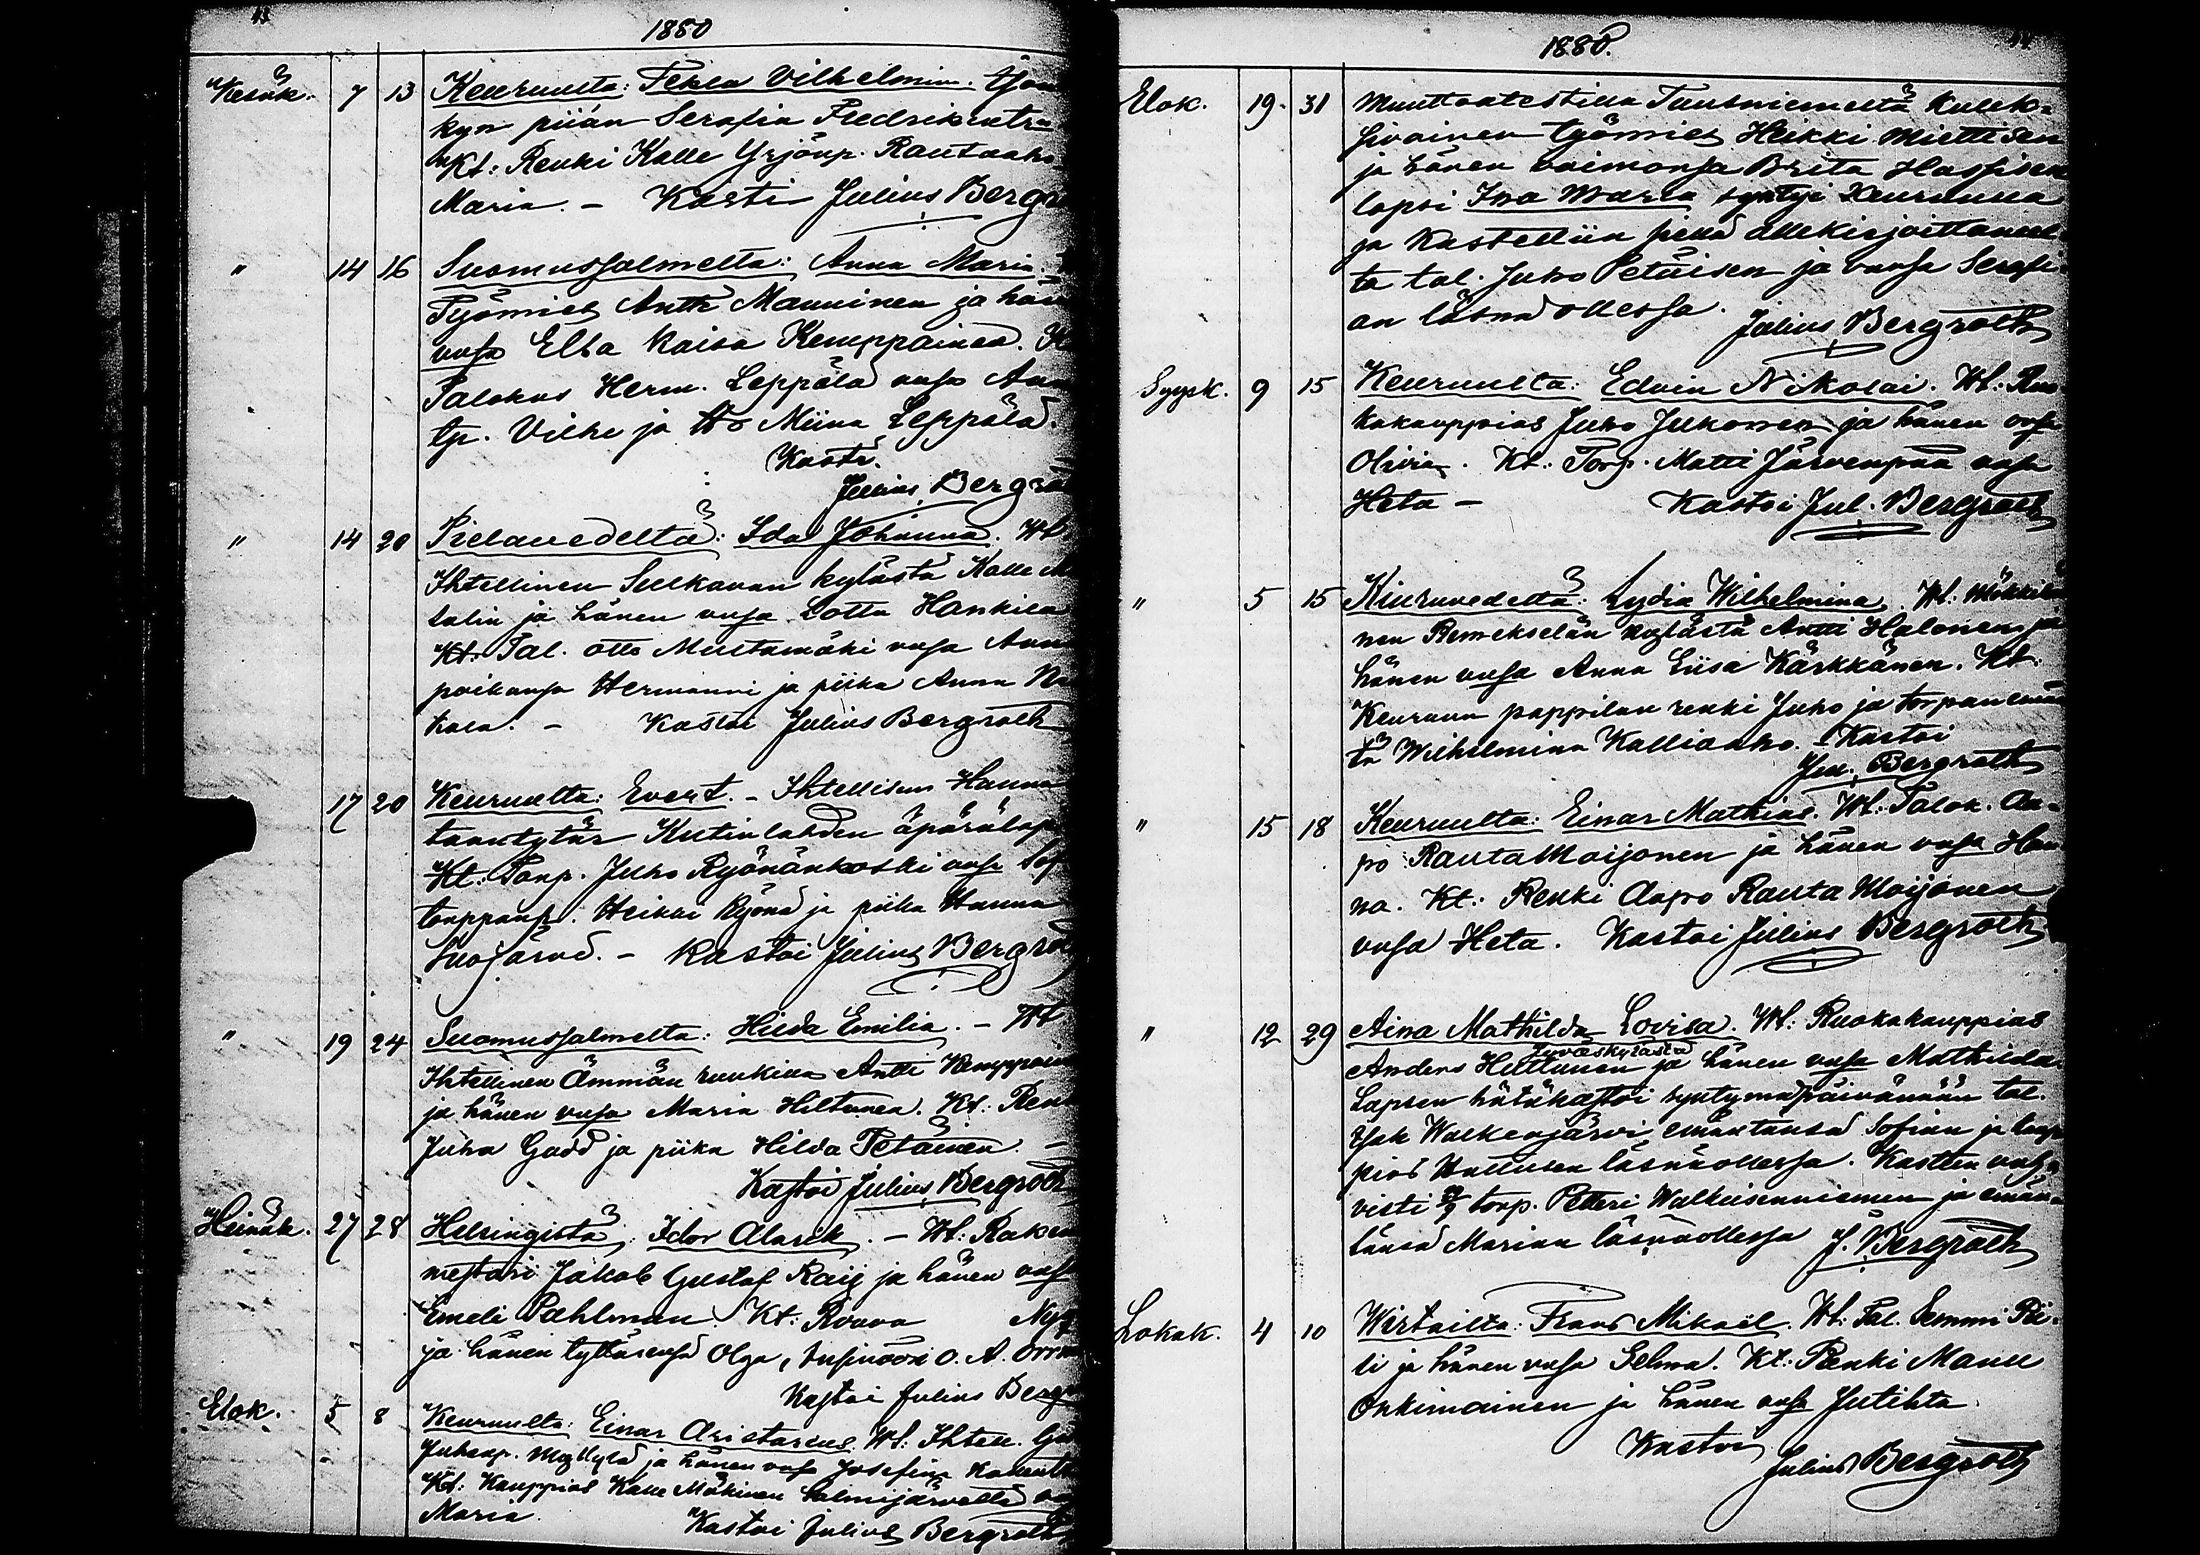 43
1880
Kesäk. 7 13 Keuruulta: Tekla Vilhelmin.
kyn piian Serafia Fredrikintr
Kt: Renki Kalle Yrjönp. Rautaaho
Maria. – Kasti Julius Bergr
" 14 16 Suomussalmelta: Anna Maria.
Työmies Antti Manninen ja hän
vsa Elsa Kaisa Kemppainen.
Talokas Herm. Leppälä vsa
tp. Vilhe ja Miina Leppälä.
Kasti
Julius Bergro
" 14 20 Pielavedeltä: Ida Johanna. Wt
Ihtellinen Sulkavan kylästä Kalle
talin ja hänen vsa Lotta Hankila
Kt: Tal. Otto Mustamäki vsa Ann
poikansa Hermanni ja piika Anna
kala. – Kastoi Julius Bergroth
17 20 Keuruulta: Evert. – Ihtellisen Hanna
tytär Kutinlahden äpärälap
Kt: Torp. Juho Ryönänkoski vsa Sof
torppanp. Heikki Ryönä ja piika Hanna
Suojärvi. – Kastoi Julius Bergro
" 19 24 Suomussalmelta: Hilda Emilia. – Wt
Ihtellinen Ämmän ruukilla Antti Kemppain
ja hänen vsa Maria Hiltunen. Kt: Ren
Juha Gadd ja piika Hilda Petäinen. –
Kastoi Julius Bergroth
Heinäk. 27 28 Helsingistä: Idor Alarik. – Wt: Raken
mestari Jakob Gustaf Raig ja hänen vsa
Emeli Pahlman. Kt: Rouva Ny
ja hänen tyttärensä Olga, Insinööri O. A.
Kastoi Julius Bergr
Elok. 5 8 Keuruulta: Einar Aristarcus. Wt: Ihtell.
Juhanp. Myllylä ja hänen vsa Josefina
Kt: Kauppias Kalle Mäkinen Salmijärveltä
Maria. Kastoi Julius Bergroth
44
1880.
Elok. 19. 31 Muuttoatestilla Tuusniemeltä kulek-
sivainen työmies Heikki Miettisen
ja hänen vaimonsa Brita Hassisen
lapsi Iva Maria syntyi Keuruulla
ja Kastettiin siellä allekirjoittaneel-
ta tal. Juho Petäisen ja vsansa Serafi-
an läsnä ollessa. Julius Bergroth
Syysk. 9 15 Keuruulta: Edvin Nikolai. Wt: Ruo
kakauppias Juho Jukonen ja hänen vsa
Olivia. Kt: Torp. Matti Järvenpää vsa
Heta – Kastoi Jul. Bergroth
" 5 15 Kiuruvedeltä: Lydia Wilhelmina. Wt: Mökkiläi
nen Remekselän kylästä Antti Halonen ja
hänen vsa Anna Liisa Kärkkänen. Kt:
Keuruun pappilan renki Juho ja torpan
tä Wilhelmina Kallioaho. – Kastoi
Jul. Bergroth
" 15 18 Keuruulta: Einar Mathias. Wt: Talok. Aa-
po RautaMoijonen ja hänen vsa Han
na. Kt: Renki Aapo RautaMoijonen
vsa Heta. Kastoi Julius Bergroth
" 12 29 Aina Mathilda Lovisa. Wt: Ruokakauppias
Jyväskylästä
Anders Huttunen ja hänen vsa Mathilda.
Lapsen hätäkastoi syntymäpäivänään tal.
Isak Walkeajärvi emäntänsä Sofian ja kaup
pias Huttusen läsnäollessa. Kasteen vah-
visti torp. Petteri Walkeisenniemen ja emän-
tänsä Marian läsnäollessa J. Bergroth
Lokak. 4 10 Wirtailta: Frans Mikael. Wt: Tal. Semmi Pii-
li ja hänen vsa Selma. Kt: Renki Manu
Onkimainen ja hänen vsa Jutihta
Kastoi Julius Bergroth